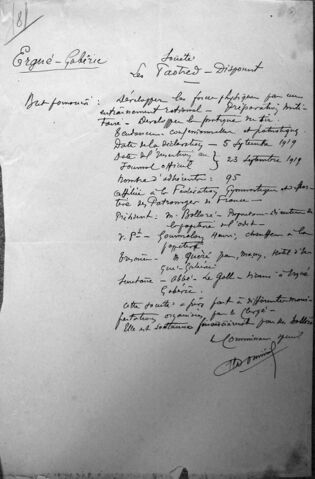 181
Ergué-Gabéric
Société
Les Paotred-Dispount
But poursuivi : Développer les forces physiques par un
entraînement rational - Préparation mili-
taire - Développer la pratique du tir.
Tendances confessionnelles et patriotiques
Date de la déclaration - 5 septembre 1919
Date de l'insertion au } 23 septembre 1919
Journal officiel
Nombre d'adhérents : 95
Affiliée à la Fédération Gymnastique et Spor-
tive des Patronages de France
Président - M. Bolloré -
la papeterie de l'Odet -
V. Pt - Gourmelen, Henri, chauffeur à la
papeterie
Trésorier - M. Quéré Jean,
-gué-Gabéric
Secrétaire - Abbé - Le Gall - Vicaire à Ergué
Gabéric
Cette société a pris part à différentes mani-
festations organisées par le Clergé -
Elle est soutenue financièrement par M. Bolloré
Le Commissaire spécial